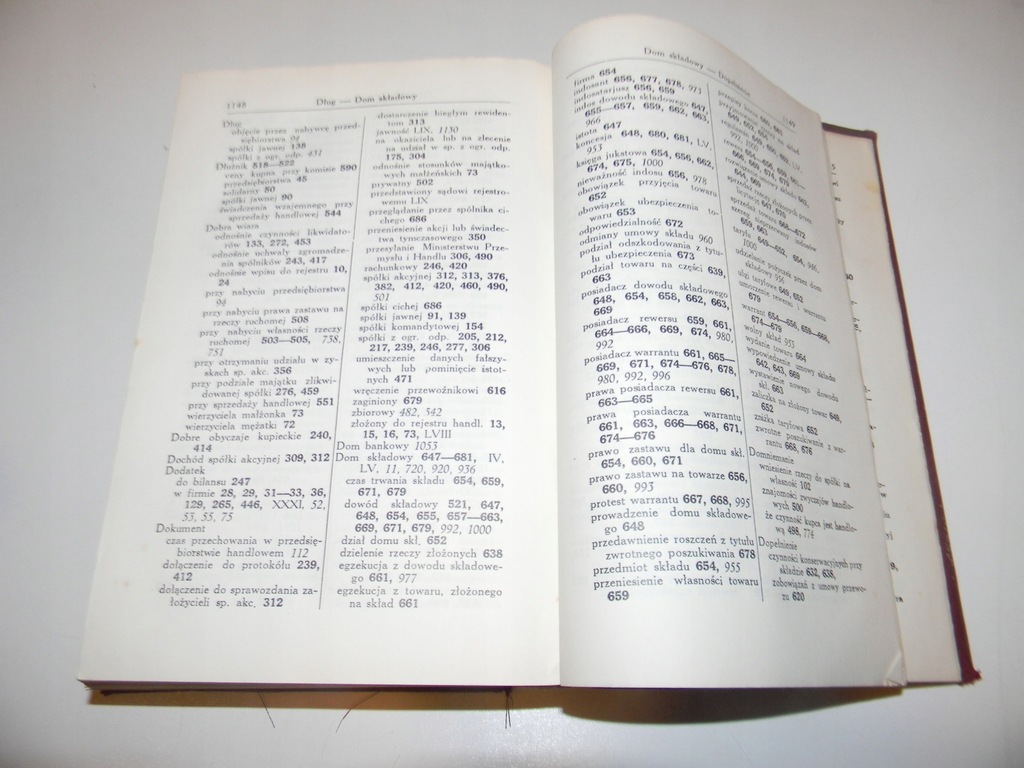 1148
Dług — Dom składowy
Dług
objęcie przez nabywcę przed-
siębiorstwa 94
spółki jawnej 138
spółki z ogr. odp. 431
Dłużnik 518—522
ceny kupna przy komisie 590
przedsiębiorstwa 45
solidarny 50
spółki jawnej 90
świadczenia wzajemnego przy
sprzedaży handlowej 544
Dobra wiara
odnośnie czynności likwidato-
rów 133, 272, 453
odnośnie uchwały zgromadze-
nia spólników 243, 417
odnośnie wpisu do rejestru 10,
24
przy nabyciu przedsiębiorstwa
94
przy nabyciu prawa zastawu na
rzeczy ruchomej 508
przy nabyciu własności rzeczy
ruchomej 503—505, 738,
751
przy otrzymaniu udziału w zy-
skach sp. akc. 356
przy podziale majątku zlikwi-
dowanej spółki 276, 459
przy sprzedaży handlowej 551
wierzyciela małżonka 73
wierzyciela mężatki 72
Dobre obyczaje kupieckie 240,
414
Dochód spółki akcyjnej 309, 312
Dodatek
do bilansu 247
w firmie 28, 29, 31—33, 36,
129, 265, 446, XXXI, 52,
53, 55, 75
Dokument
czas przechowania w przedsię-
biorstwie handlowem 112
dołączenie do protokółu 239,
412
dołączenie do sprawozdania za-
łożycieli sp. akc. 312
dostarczenie biegłym rewiden-
tom 313
jawność LIX, 1150
na okaziciela lub na zlecenie
na udział w sp. z ogr. odp.
175, 304
odnośnie stosunków majątko-
wych małżeńskich 73
prywatny 502
przedstawiony sądowi rejestro-
wemu LIX
przeglądanie przez spólnika ci-
chego 686
przeniesienie akcji lub świadec-
twa tymczasowego 350
przesyłanie Ministerstwu Prze-
mysłu i Handlu 306, 490
rachunkowy 246, 420
spółki akcyjnej 312, 313, 376,
382, 412, 420, 460, 490,
501
spółki cichej 686
spółki jawnej 91, 139
spółki komandytowej 154
spółki z ogr. odp. 205, 212,
217, 239, 246, 277, 306
umieszczenie danych fałszy-
wych lub pominięcie istot-
nych 471
wręczenie przewoźnikowi 616
zaginiony 679
zbiorowy 482, 542
złożony do rejestru handl. 13,
15, 16, 73, LVIII
Dom bankowy 1053
Dom składowy 647—681, IV,
LV, 11, 720, 920, 936
czas trwania składu 654, 659,
671, 679
dowód składowy 521, 647,
648, 654, 655, 657—663,
669, 671, 679, 992, 1000
dział domu skł. 652
dzielenie rzeczy złożonych 638
egzekucja z dowodu składowe-
go 661, 977
egzekucja z towaru, złożonego
na skład 661
Dom składowy — Dopełnienie
1149
firma 654
indosant 656, 677, 678, 973
indosatarjusz 656, 659
indos dowodu składowego 647,
655—657, 659, 662, 663,
966
istota 647
koncesja 648, 680, 681, LV,
953
księga jukstowa 654, 656, 662,
674, 675, 1000
nieważność indosu 656, 978
obowiązek przyjęcia towaru
652
obowiązek ubezpieczenia to-
waru 653
odpowiedzialność 672
odmiany umowy składu 960
podział odszkodowania z tytu-
łu ubezpieczenia 673
podział towaru na części 639,
663
posiadacz dowodu składowego
648, 654, 658, 662, 663,
669
posiadacz rewersu 659, 661,
664—666, 669, 674, 980,
992
posiadacz warrantu 661, 665—
669, 671, 674—676, 678,
980, 992, 996
prawa posiadacza rewersu 661,
663—665
prawa posiadacza warrantu
661, 663, 666—668, 671,
674—676
prawo zastawu dla domu skł.
654, 660, 671
prawo zastawu na towarze 656,
660, 993
protest warrantu 667, 668, 995
prowadzenie domu składowe-
go 648
przedawnienie roszczeń z tytułu
zwrotnego poszukiwania 678
przedmiot składu 654, 955
przeniesienie własności towaru
659
sprzedaż towaru 668—672
szereg nieprzerwany indosów
659, 663
taryfa 649—652, 654, 986,
1000
udzielanie pożyczek przez dom
składowy 956
ulgi taryfowe 649, 652
umorzenie rewersu i warrantu
679
warrant 654—656, 659—668,
674—679
wolny skład 953
wydanie towaru 664
wypowiedzenie umowy składu
642, 643, 669
wystawienie nowego dowodu
skł. 663
zaliczka na złożony towar 648,
652
zniżka taryfowa 652
zwrotne poszukiwanie z war-
rantu 668, 676
Domniemanie
wniesienie rzeczy do spółki na
własność 102
znajomości zwyczajów handlo-
wych 500
że czynność kupca jest handlo-
wą 498, 774
Dopełnienie
czynności konserwacyjnych przy
składzie 632, 638,
zobowiązań z umowy przewo-
zu 620